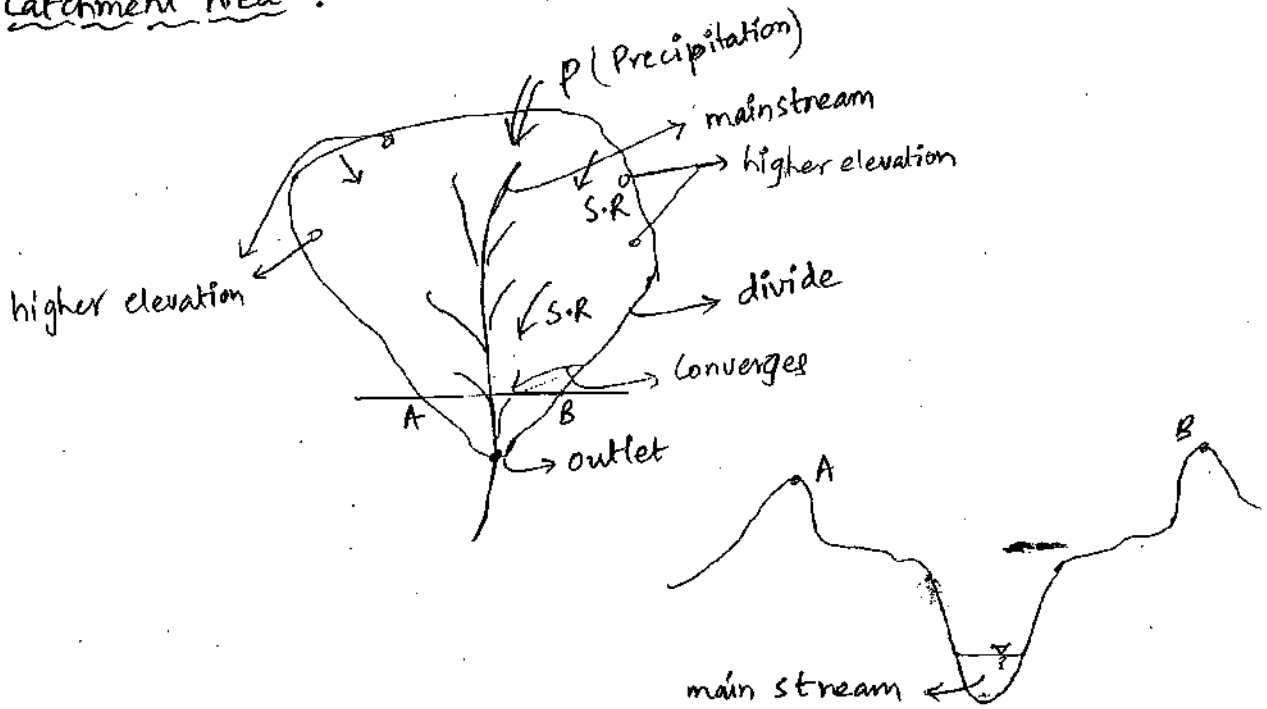 Catchment Area :
P (Precipitation)
mainstream
higher elevation
S.R
higher elevation
divide
S.R
Converges
A
B
outlet
A
B
main stream